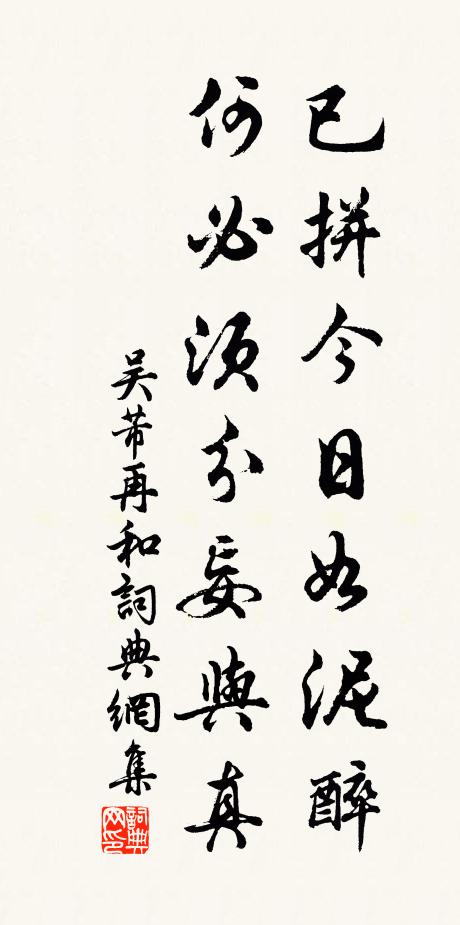 已拼今日如泥醉
何必須分妄與真
吳芾再和詞典網集
詞典网印